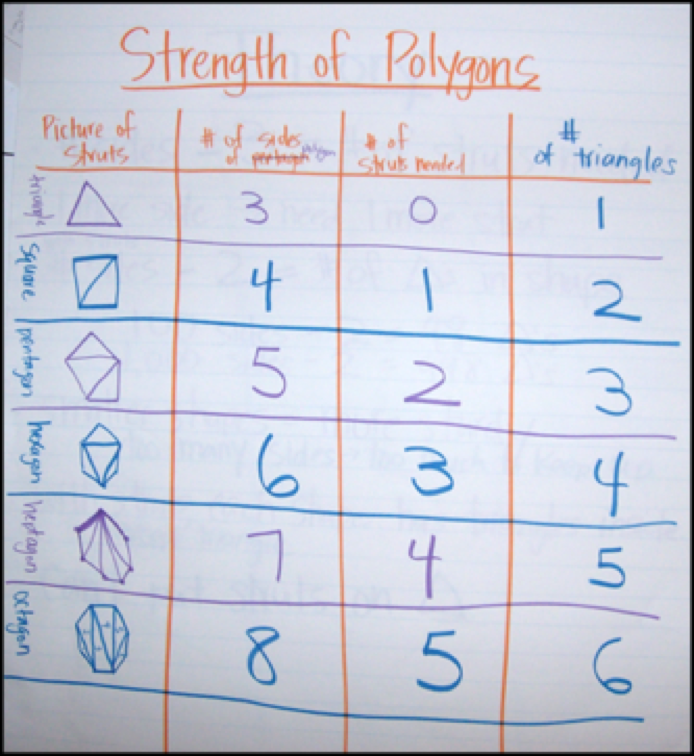 Strength of Polygons
Picture of struts
# of sides of pentagon
# of struts needed
# of triangles
triangle 3 0 1
square 4 1 2
pentagon 5 2 3
hexagon 6 3 4
heptagon 7 4 5
octagon 8 5 6